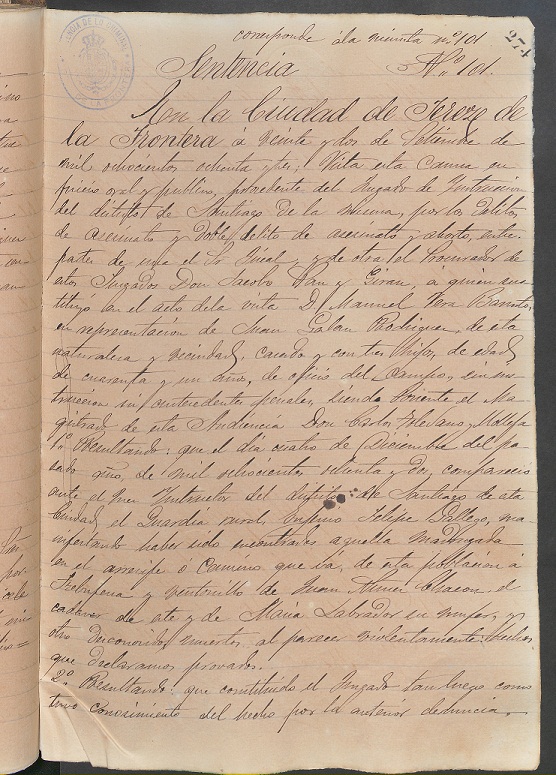 corresponde á la minuta nº 101
274
Sentencia Nº 101.
En la Ciudad de Jerez de
la Frontera á veinte y dos de Setiembre de
mil ochocientos ochenta y tres; Vista esta Causa en
juicio oral y publico, procedente del Juzgado de Instruccion
del distrito de Santiago de la misma, por los delitos
de asesinato y doble delito de asesinato y aborto, entre
partes de una el Sr Fiscal, y de otra el Procurador de
estos Juzgados Don Jacobo y á quien sus
tituyó en el acto de la vista D. Manuel Vera
en representacion de Juan Galan Rodriguez, de esta
naturaleza y vecindad, casado y con tres hijos, de edad
de cuarenta y un años, de oficio del Campo, sin ins
truccion ni antecedentes penales, siendo Ponente el Ma
gistrado de esta Audiencia Don Carlos Toledano y
1º Resultando: que el dia cuatro de Diciembre del pa
sado año, de mil ochocientos ochenta y dos, compareció
ante el Juez Instructor del distrito de Santiago de esta
Ciudad, el Guardia rural, Felipe Gallego, ma
nifestando haber sido encontrados aquella madrugada
en el arrecife o Camino que vá, de esta poblacion á
Trebujena y ventorrillo de Juan Nuñez Chacon, el
cadaver de este y de María Labrador su mujer, y
otro desconocido, muertos, al parecer violentamente. Hechos
que declaramos provados.
2º Resultando: que constituido el Juzgado tan luego como
tuvo conocimiento del hecho por la anterior denuncia,